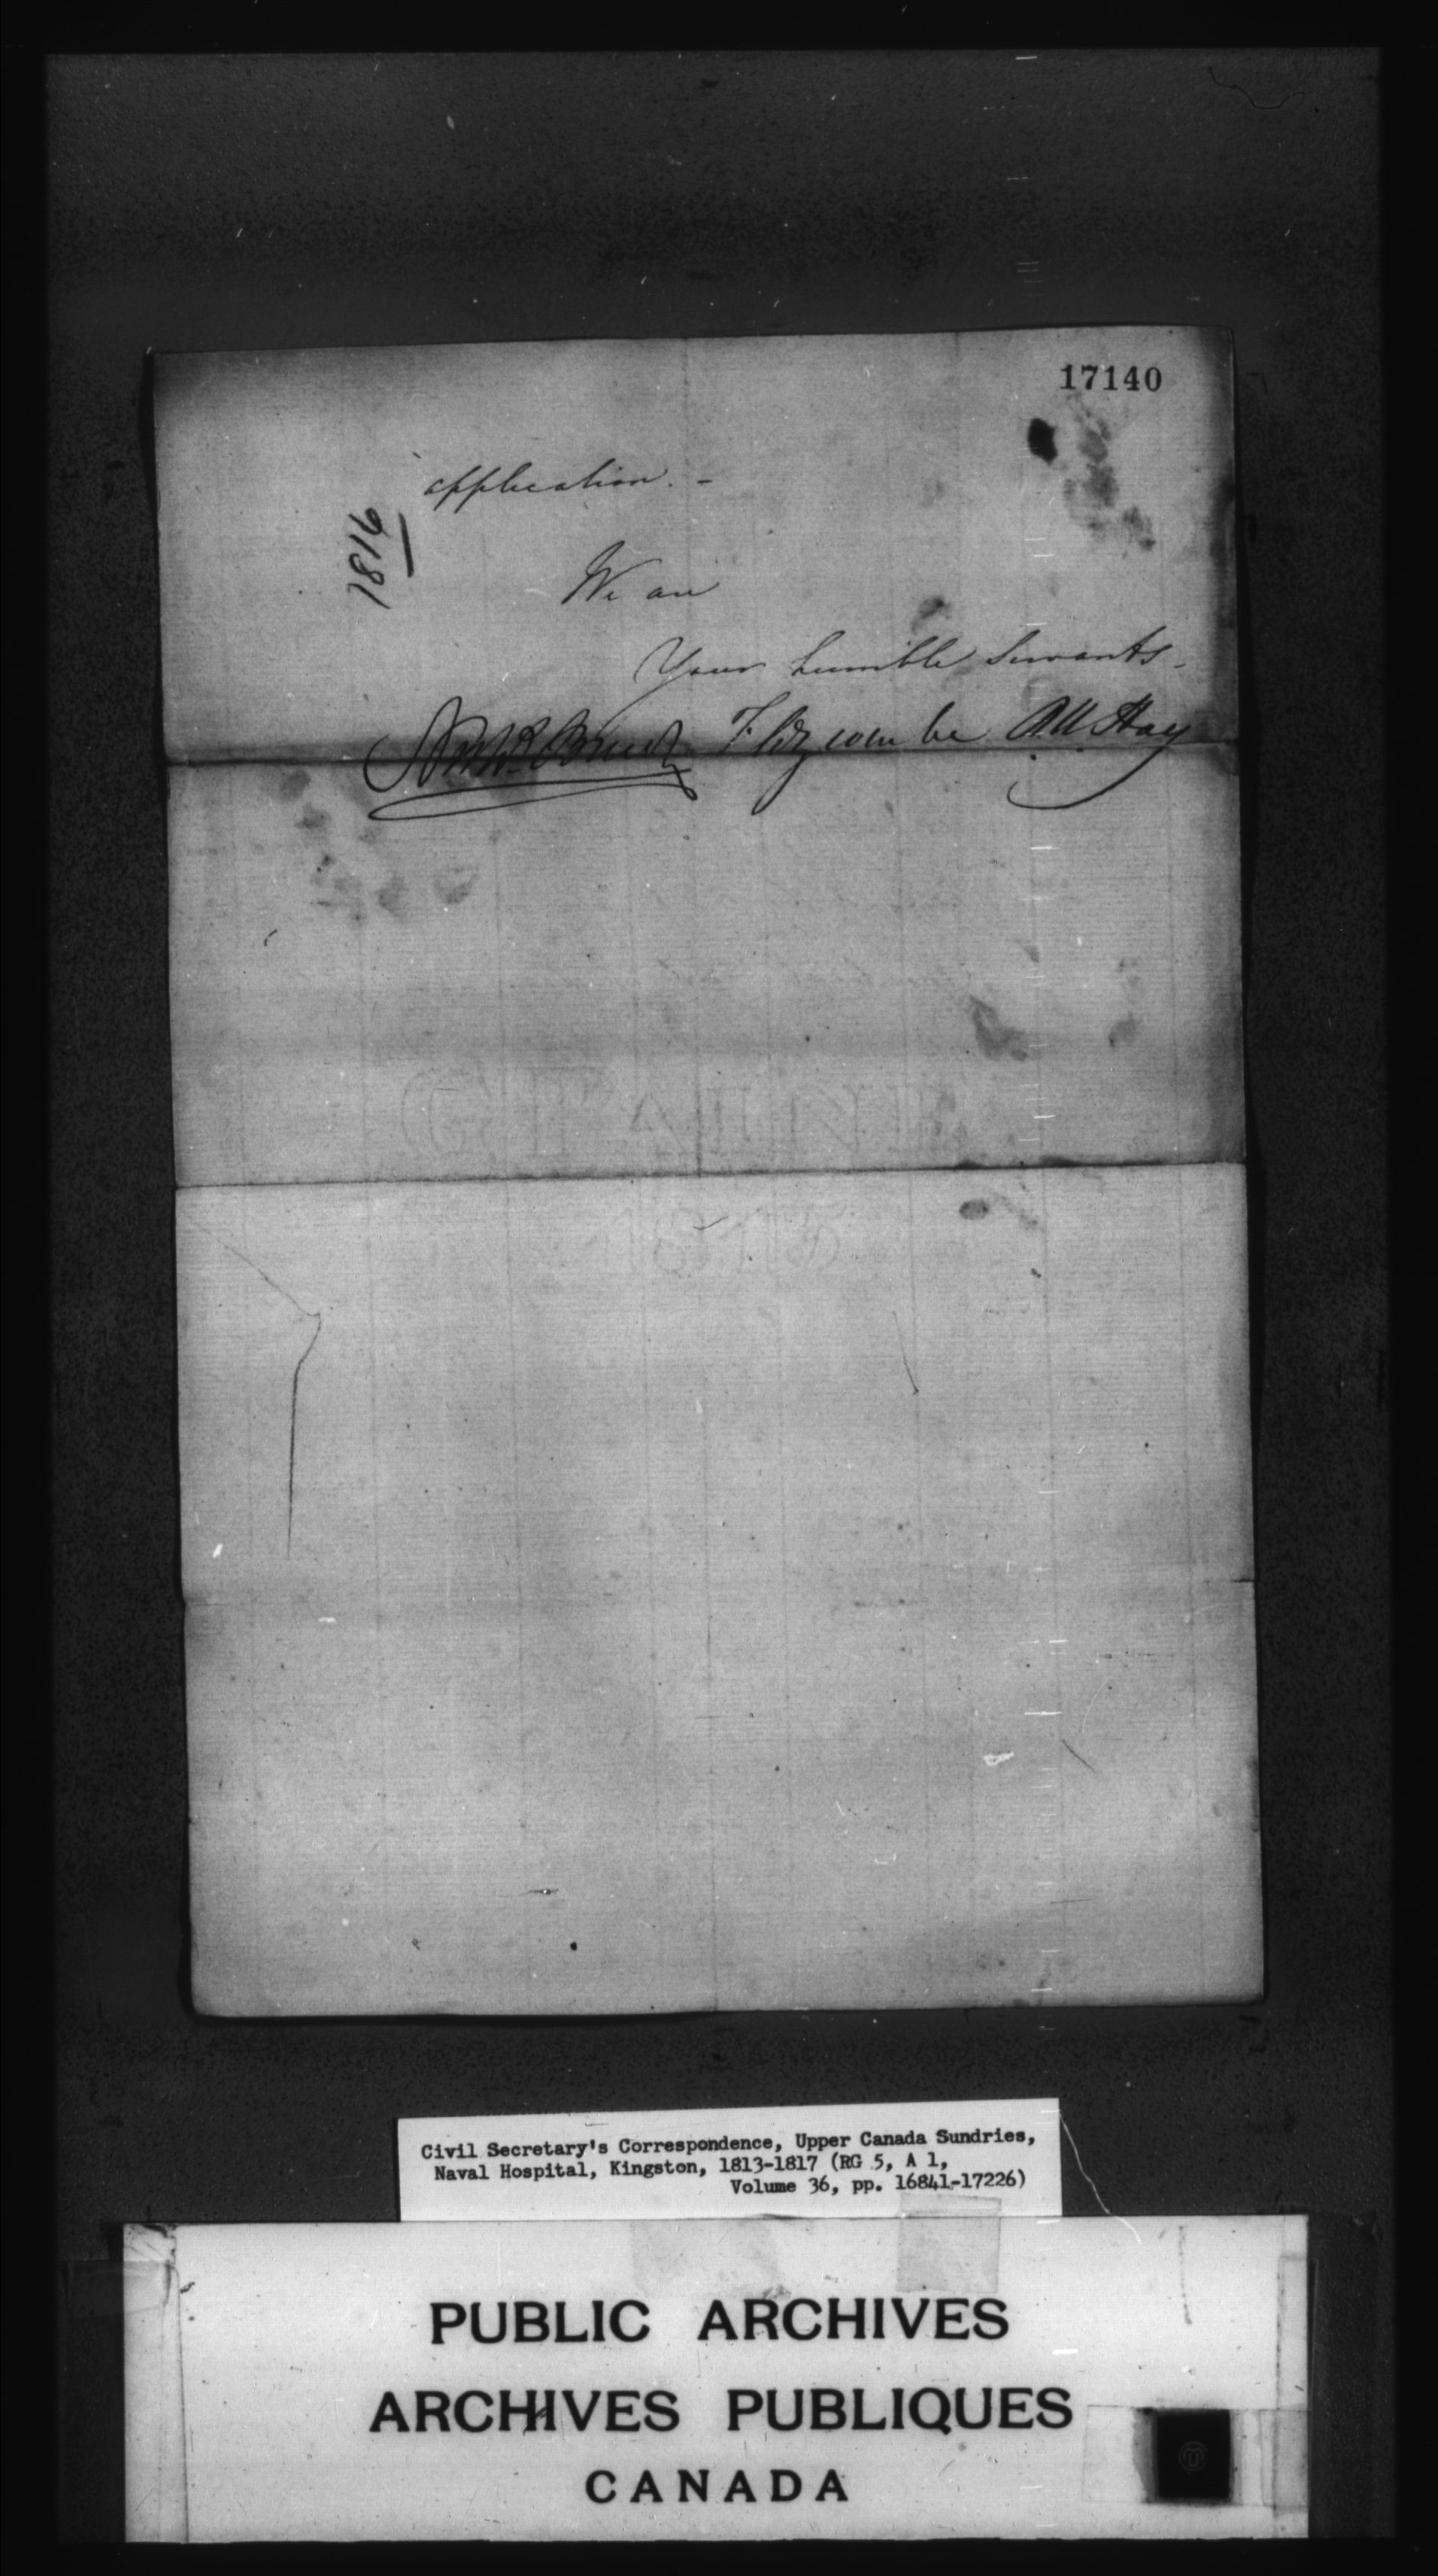 17140
application. -
1816
We are
Your humble Servants -
Civil Secretary's Correspondence, Upper Canada Sundries,
Naval Hospital, Kingston, 1813-1817 (RG 5, A 1,
Volume 36, pp. 16841-17226)
PUBLIC ARCHIVES
ARCHIVES PUBLIQUES
CANADA